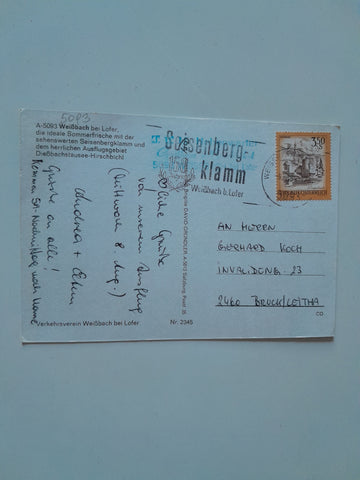 5093
A-5093 Weißbach bei Lofer,
die ideale Sommerfrische mit der
sehenswerten Seisenbergklamm und
dem herrlichen Ausflugsgebiet
Dießbachstausee-Hirschbichl
Seisenberg-
klamm
150
Weißbach b. Lofer
3.50
REPUBLIK ÖSTERREICH
5093
Grüße
von unserem Ausflug
(Mittwoch 8. Aug.)
Andrea + Eltern
Grüße an alle!
Kommen Nachmittag nach Hause
AN HERRN
GERHARD KOCH
INVALIDENG. 23
2460 BRUCK/LEITHA
Verkehrsverein Weißbach bei Lofer
Nr. 2345
CO